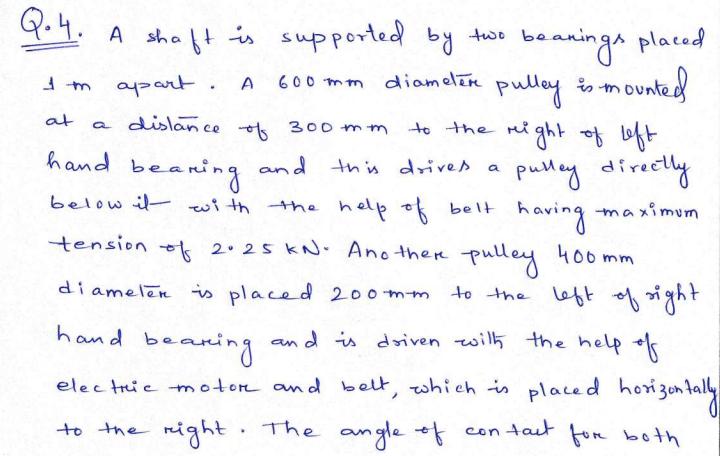 Q.4. A shaft is supported by two bearings placed
1 m apart. A 600 mm diameter pulley is mounted
at a distance of 300 mm to the right of left
hand bearing and this drives a pulley directly
below it with the help of belt having maximum
tension of 2.25 kN. Another pulley 400 mm
diameter is placed 200 mm to the left of right
hand bearing and is driven with the help of
electric motor and belt, which is placed horizontally
to the right. The angle of contact for both